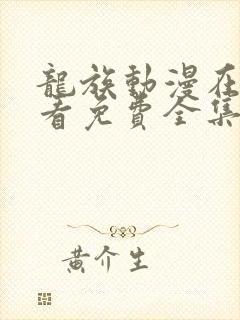 龍族動漫在
看免費全集
黃介生